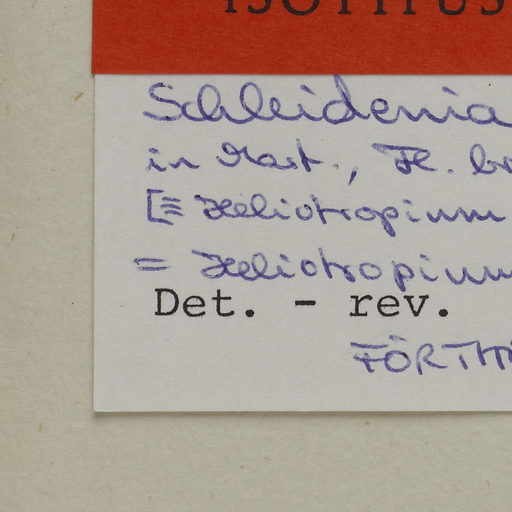 ISOTYPUS
Schleidenia
in Mart., Fl. br
[≡ Heliotropium
= Heliotropium
Det. - rev.
FÖRTH